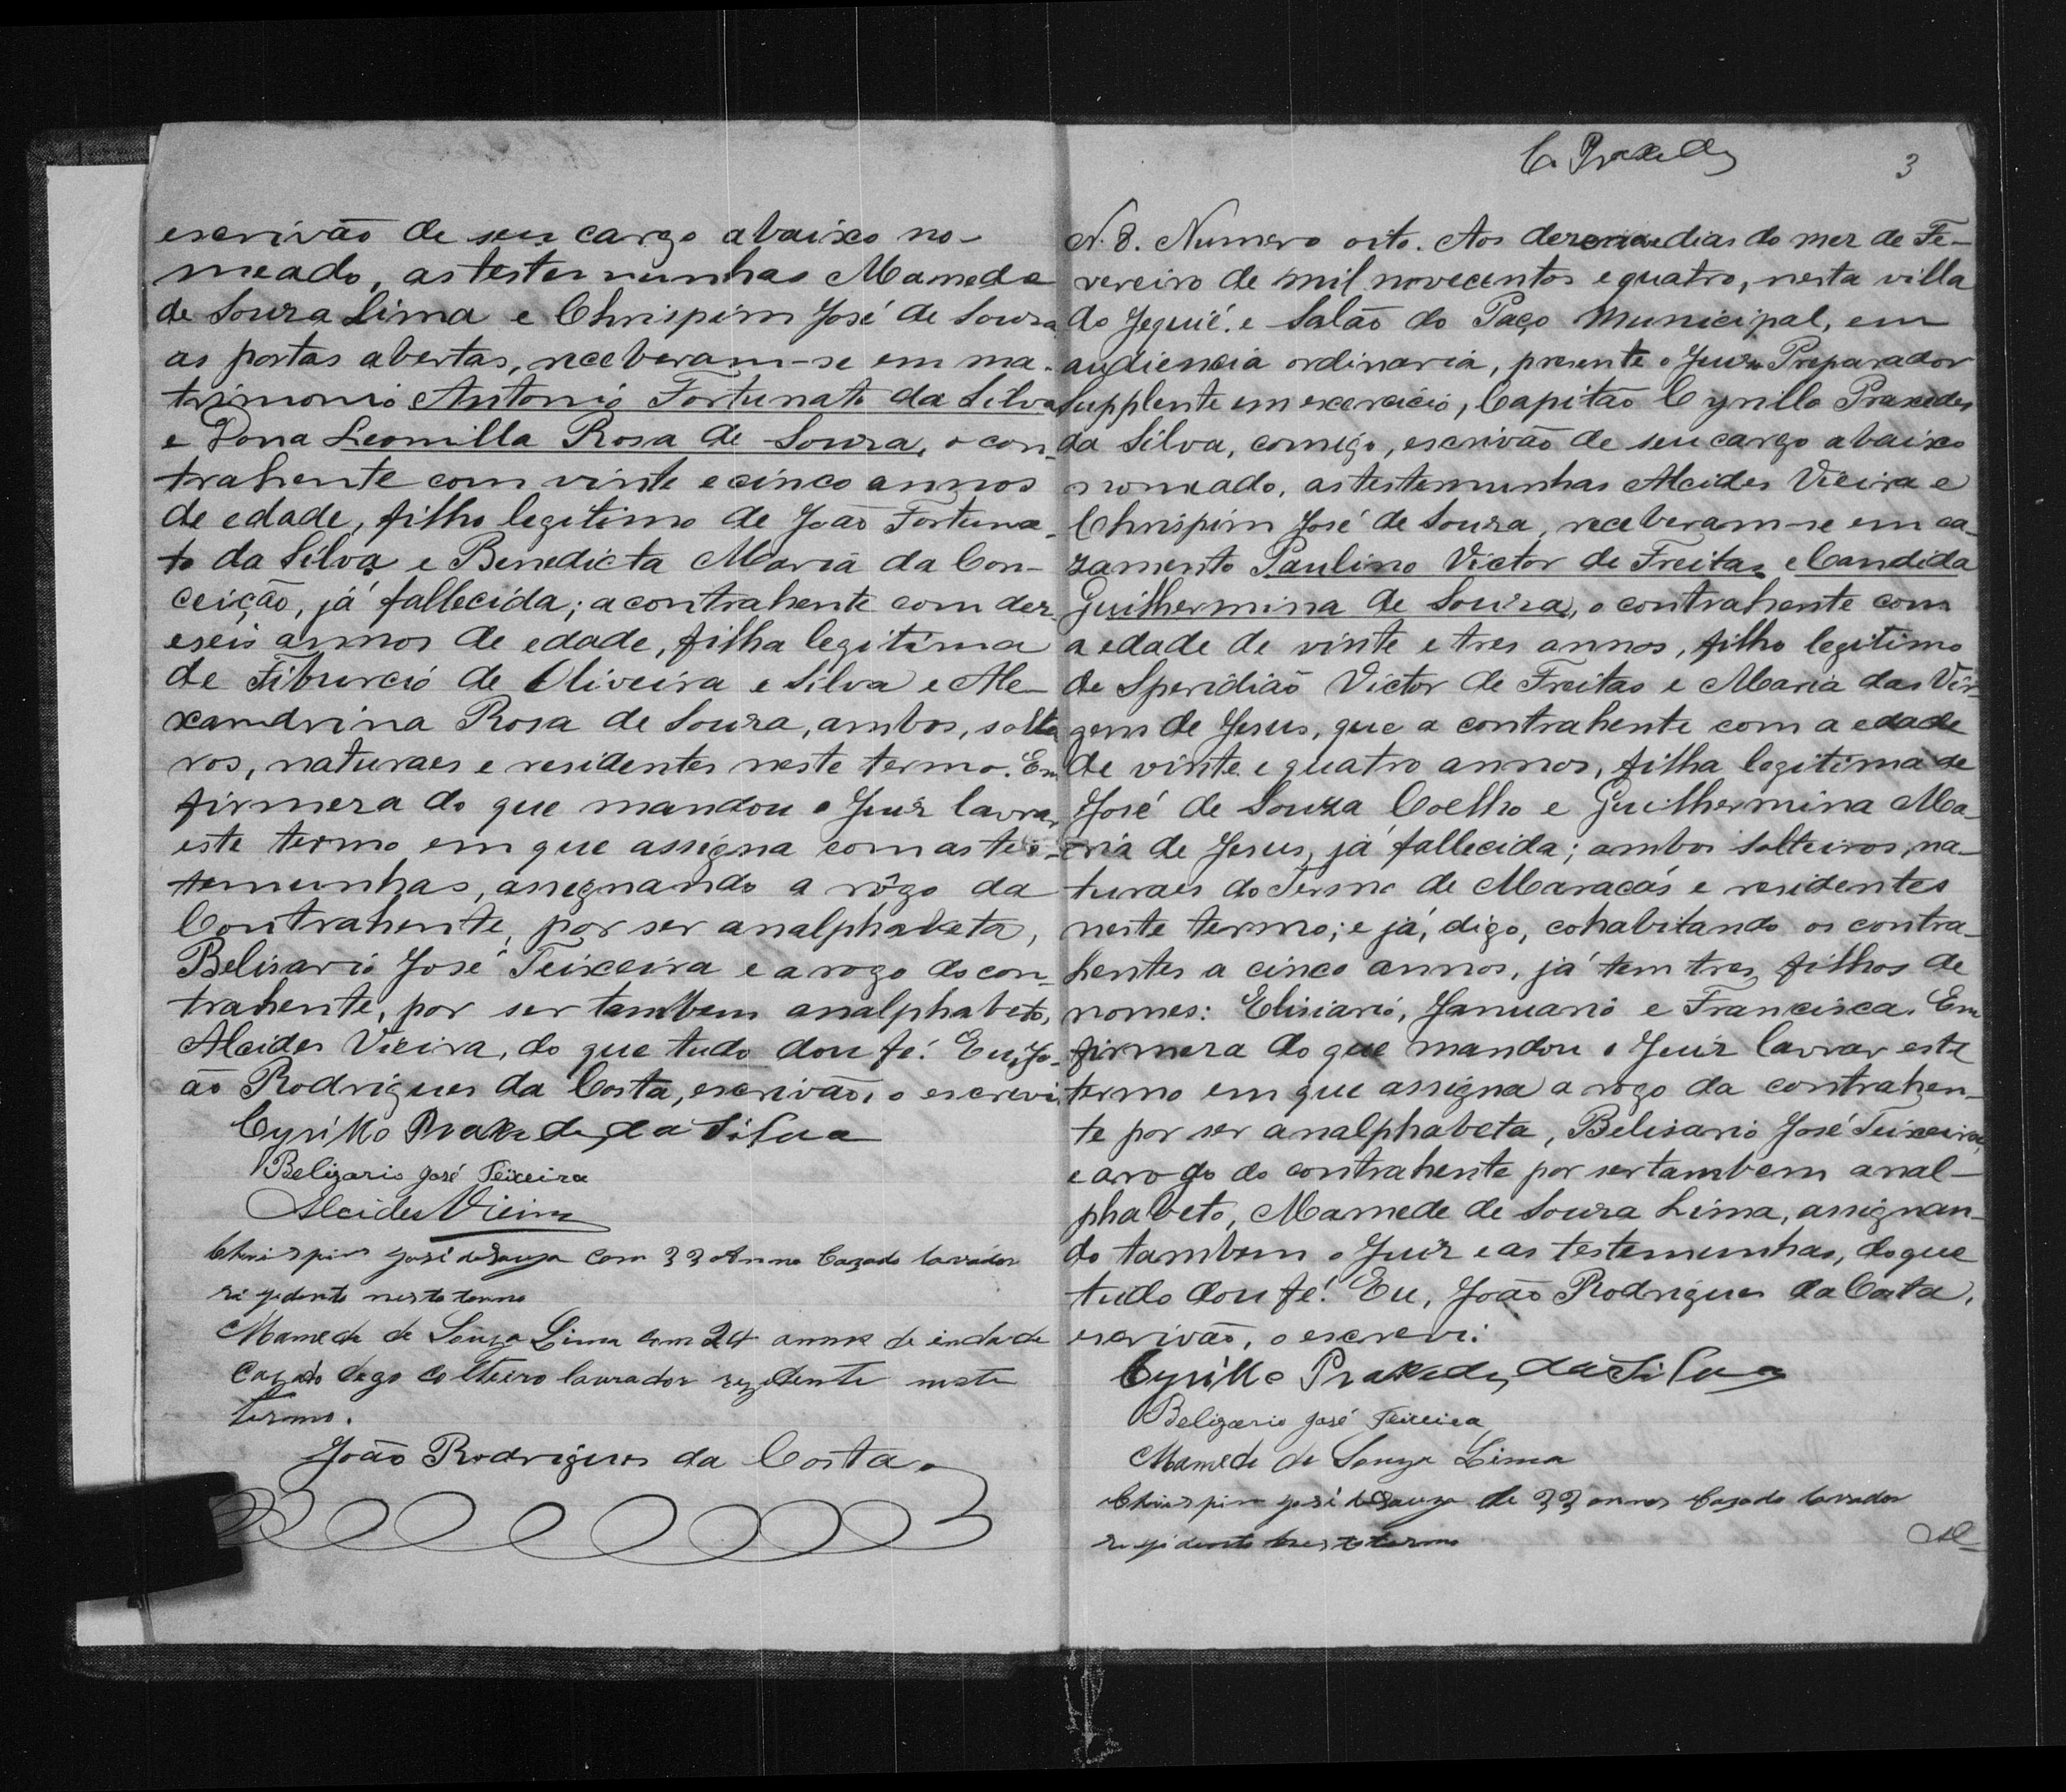 escrivão de seu cargo abaixo no-
meado, as testemunhas Mamede
de Souza Lima e Chrispim José de Souza
as portas abertas, receberam-se em ma-
trimonio Antonio Fortunato da Silva
e Dona Leonilla Rosa de Souza, o con-
trahente com vinte e cinco annos
de edade, filho legitimo de João Fortuna-
to da Silva e Benedicta Maria da Con-
ceição, já fallecida; a contrahente com dez
eseis annos de edade, filha legitima
de Tiburcio de Oliveira e Silva e Ale-
xandrina Rosa de Souza, ambos, soltei
ros, naturaes e residentes neste termo. Em
firmeza do que mandou o Juiz lavrar
este termo em que assigna com as tes-
temunhas, assegnando a rôgo da
Contrahente, por ser analphabeta,
Belisario José Teixeira e a rogo do con-
trahente, por ser tambem analphabeto,
Alcides Vieira, do que tudo dou fé. Eu, Jo-
ão Rodrigues da Costa, escrivão, o escrevi.
Cyrillo Praxedes da Silva
Belizario José Teixeira
Alcides Vieira
Chrispim José de Souza com 33 Anno Cazado lavrador
rezidente nesto termo
Mamede de Souza Lima com 24 annos de eidade
Cazado dego Colteiro lavrador rezidente neste
termo.
João Rodrigues da Costa
C. Praxedes
3
N. 8. Numero oito. Aos dezenove dias do mez de Fe-
vereiro de mil novecentos e quatro, nesta villa
do Jequié. e Salão do Paço Municipal, em
audiencia ordinaria, presente o Juiz Preparador
Supplente em exercicio, Capitão Cyrillo Praxedes
da Silva, comigo, escrivão de seu cargo abaixo
nomeado, as testemunhas Alcides Vieira e
Chrispim José de Souza, receberam-se em ca-
zamento Paulino Victor de Freitas e Candida
Guilhermina de Souza, o contrahente com
a edade de vinte e tres annos, filho legitimo
de Speridião Victor de Freitas e Maria das Vir-
gens de Jesus, que a contrahente com a edade
de vinte e quatro annos, filha legitima de
José de Souza Coelho e Guilhermina Ma-
ria de Jesus, já fallecida; ambos solteiros, na-
turaes do Termo de Maracás e residentes
neste termo; e já, digo, cohabitando os contra-
hentes a cinco annos, já tem tres filhos de
nomes: Elisiario, Januario e Francisca. Em
firmeza do que mandou o Juiz lavrar este
termo em que assigna a rogo da contrahen-
te por ser analphabeta, Belisario José Teixeira,
e a rogo do contrahente por ser tambem anal-
phabeto, Mamede de Souza Lima, assignan-
do tambem o Juiz e as testemunhas, do que
tudo dou fé. Eu, João Rodrigues da Costa,
escrivão, o escrevi.
Cyrillo Praxedes da Silva
Belizario José Teixeira
Mamede de Souza Lima
Chrispim José de Souza de 33 annos Cazado lavrador
rezidente nesto termo
Al-